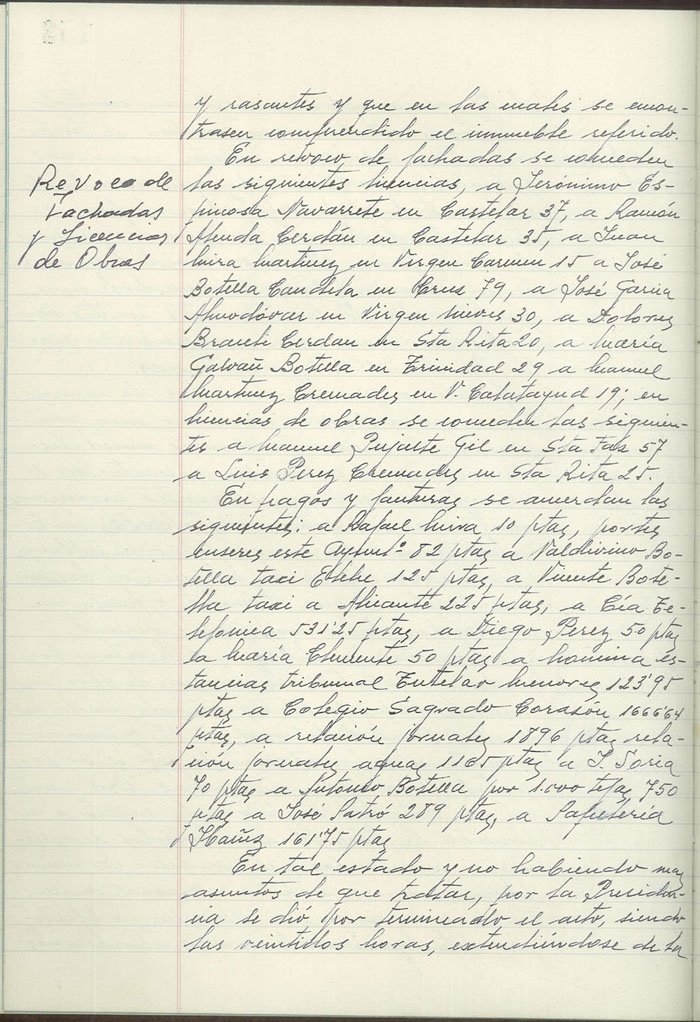 y rasantes y que en las cuales se encon-
trasen comprendido el inmueble referido.
En revoco de fachadas se conceden
las siguientes licencias, a Jerónimo Es-
pinosa Navarrete en Castelar 37, a Ramón
Cerdán en Castelar 35, a Juan
Mira Martinez en Virgen Carmen 15 a José
Botella Candela en Cruz 79, a José Garcia
Almodóvar en Virgen Nieves 30, a Dolores
Cerdan en Sta Rita 20, a María
Galvañ Botella en Trinidad 29 a Manuel
Martinez Cremades en V. Calatayud 19; en
licencias de obras se conceden las siguien-
tes a Manuel Pujalte Gil en Sta Faz 57
a Luis Perez Cremades en Sta Rita 25.
En pagos y facturas se acuerdan las
siguientes: a Rafael Mira 10 ptas, portes
enseres este Ayunt.º 82 ptas a Valdivino Bo-
tella taxi Elche 125 ptas, a Vicente Bote-
lla taxi a Alicante 225 ptas, a Cía Te-
lefónica 531'25 ptas, a Diego Perez 50 ptas
a María Clemente 50 ptas a nomina es-
tancias tribunal Tutelar Menores 123'95
ptas a Colegio Sagrado Corasón 1666'64
ptas, a relación jornales 1896 ptas rela-
ción jornales aguas 1165 ptas a J. Soria
70 ptas a Antonio Botella por 1.000 tejas 750
ptas a José Satró 289 ptas, a Papeteria
Ibañez 161'75 ptas
En tal estado y no habiendo mas
asuntos de que tratar, por la Presiden-
cia se dió por terminado el acto, siendo
las veintidos horas, extendiéndose de la
Revoco de
Fachadas
y Licencias
de Obras